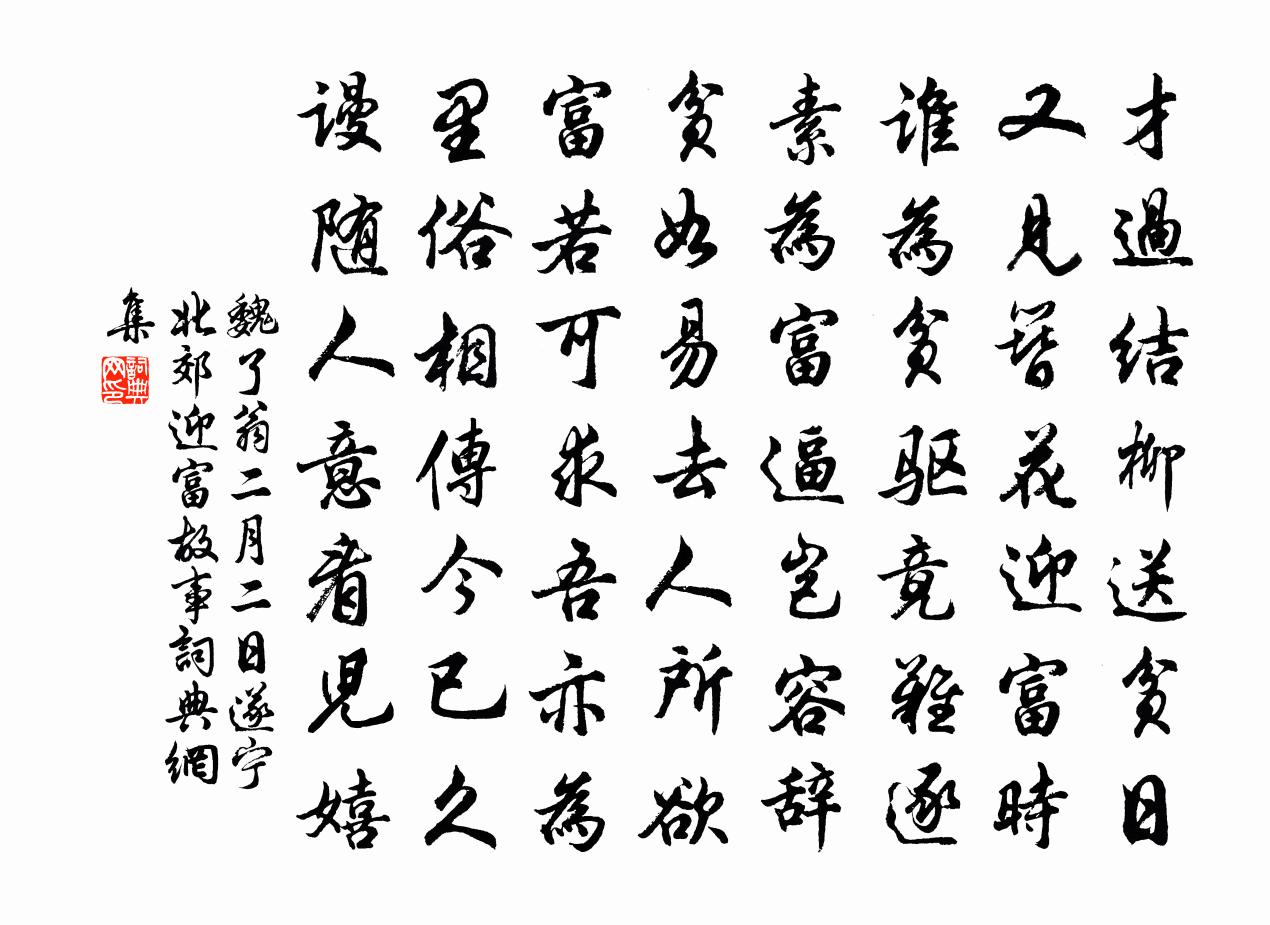 才過结柳送贫日
又見簪花迎富時
谁為贫驱竟難逐
素為富逼岂容辞
贫如易去人所欲
富若可求吾亦為
里俗相傳今已久
谩随人意看児嬉
魏了翁二月二日遂宁
北郊迎富故事詞典網
集
詞典
网印